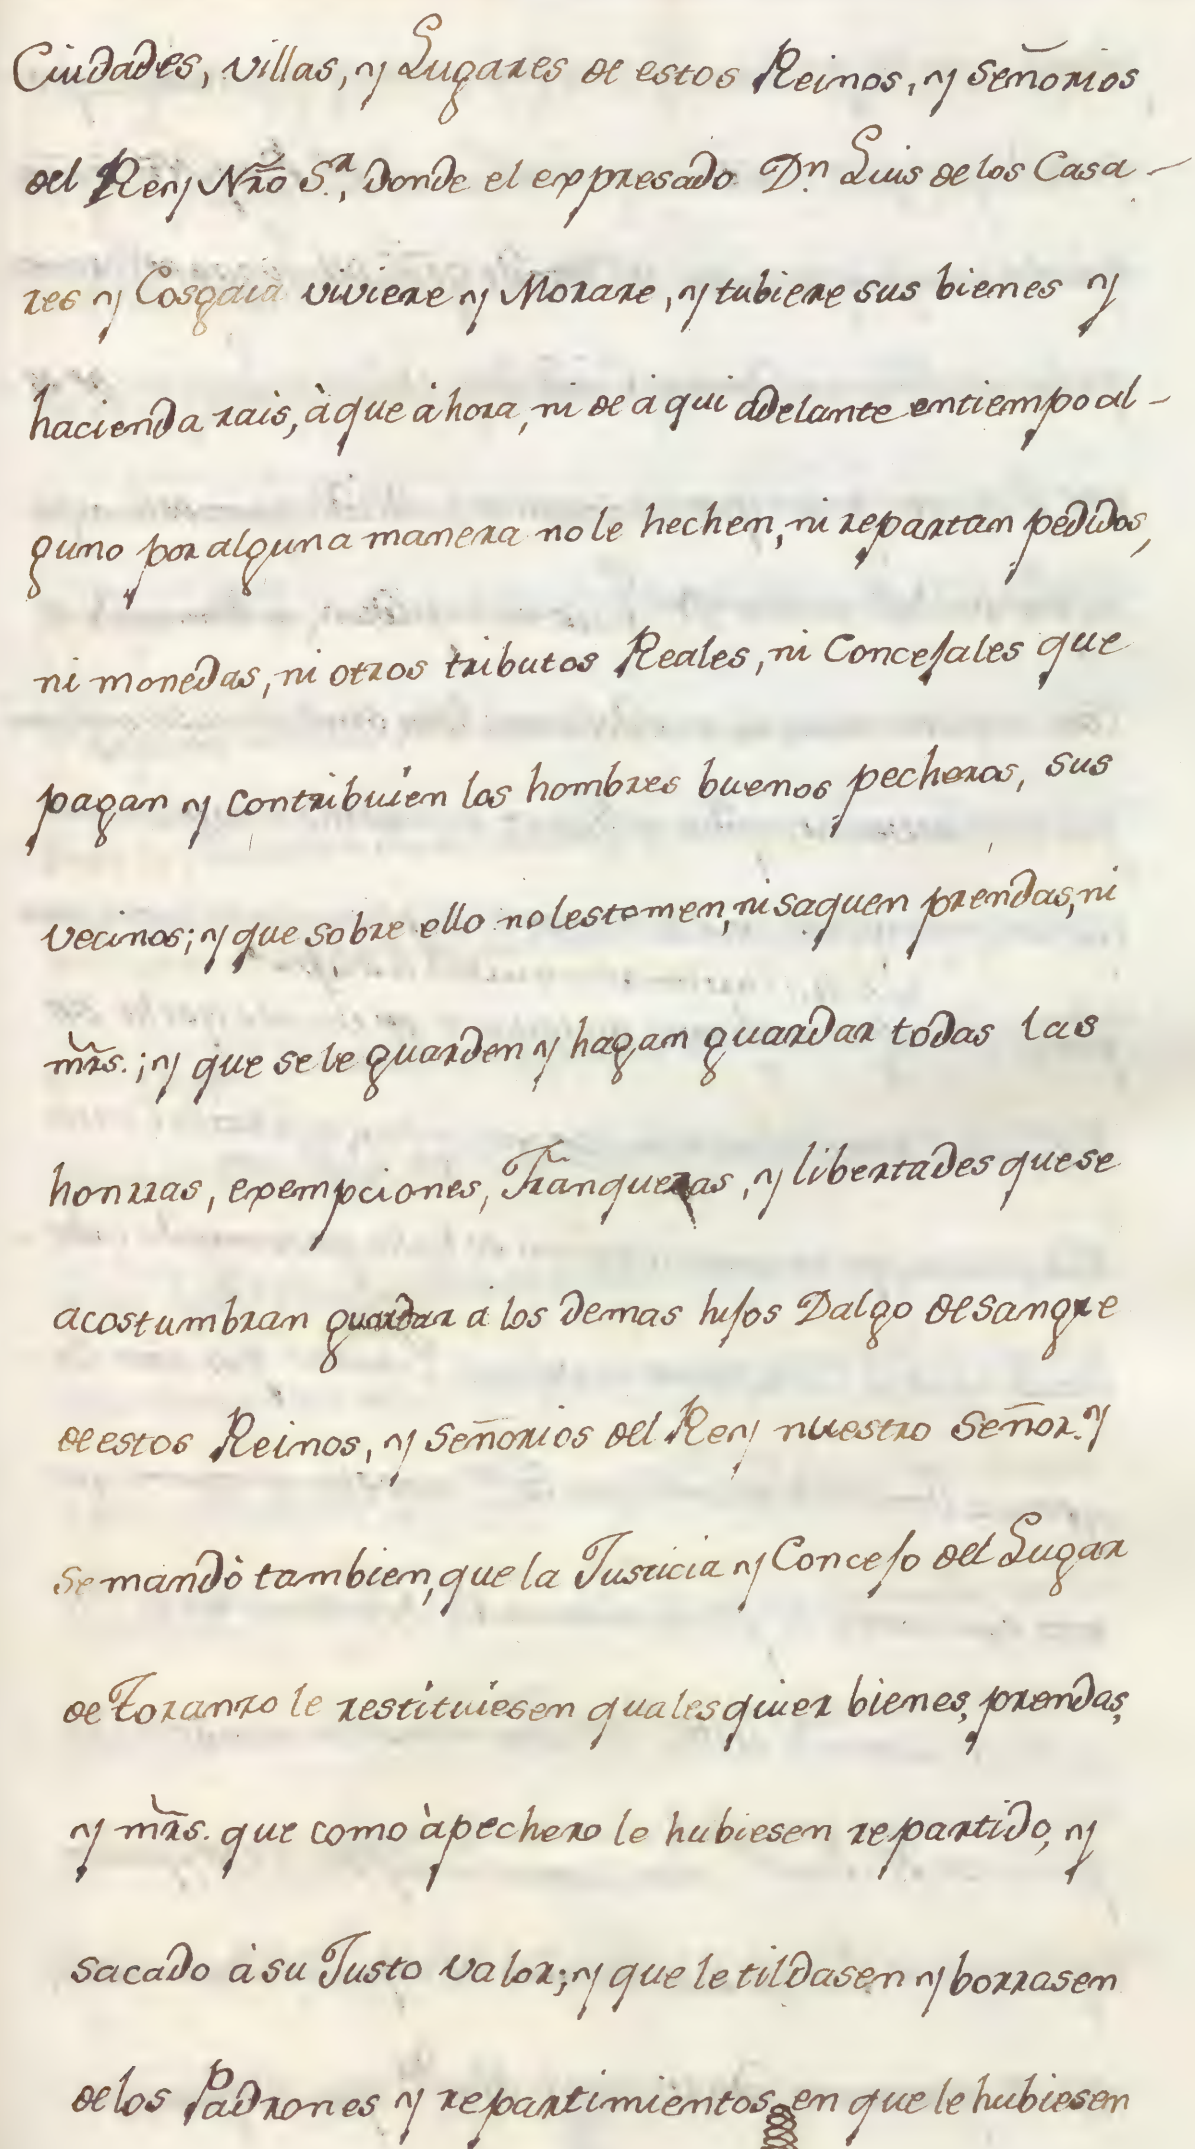 Ciudades, villas, y Lugares de estos Reinos, y señorios
del Rey Nrõ S.r, donde el expresado Dn Luis de los Casa-
res y Cosgaia viviere y Morare, y tubiere sus bienes y
hacienda rais, à que àhora, ni de à qui adelante entiempo al-
guno por alguna manera no le hechen, ni repartan pedidos,
ni monedas, ni otros tributos Reales, ni Concejales que
pagan y contribuien los hombres buenos pecheros, sus
vecinos; y que sobre ello no lestomen, ni saquen prendas, ni
mr̃s.; y que se le guarden y hagan guardar todas las
honrras, exempciones, Franquezas, y libertades que se
acostumbran guardar a los demas hijos Dalgo de sangre
de estos Reinos, y señorios del Rey nuestro Señor. y
se mandò tambien, que la Justicia y Concejo del Lugar
de Toranzo le restituiesen quales quier bienes, prendas,
y mr̃s. que como à pechero le hubiesen repartido, y
sacado à su Justo valor; y que le tildasen y borrasen
de los Padrones y repartimientos en que le hubiesen